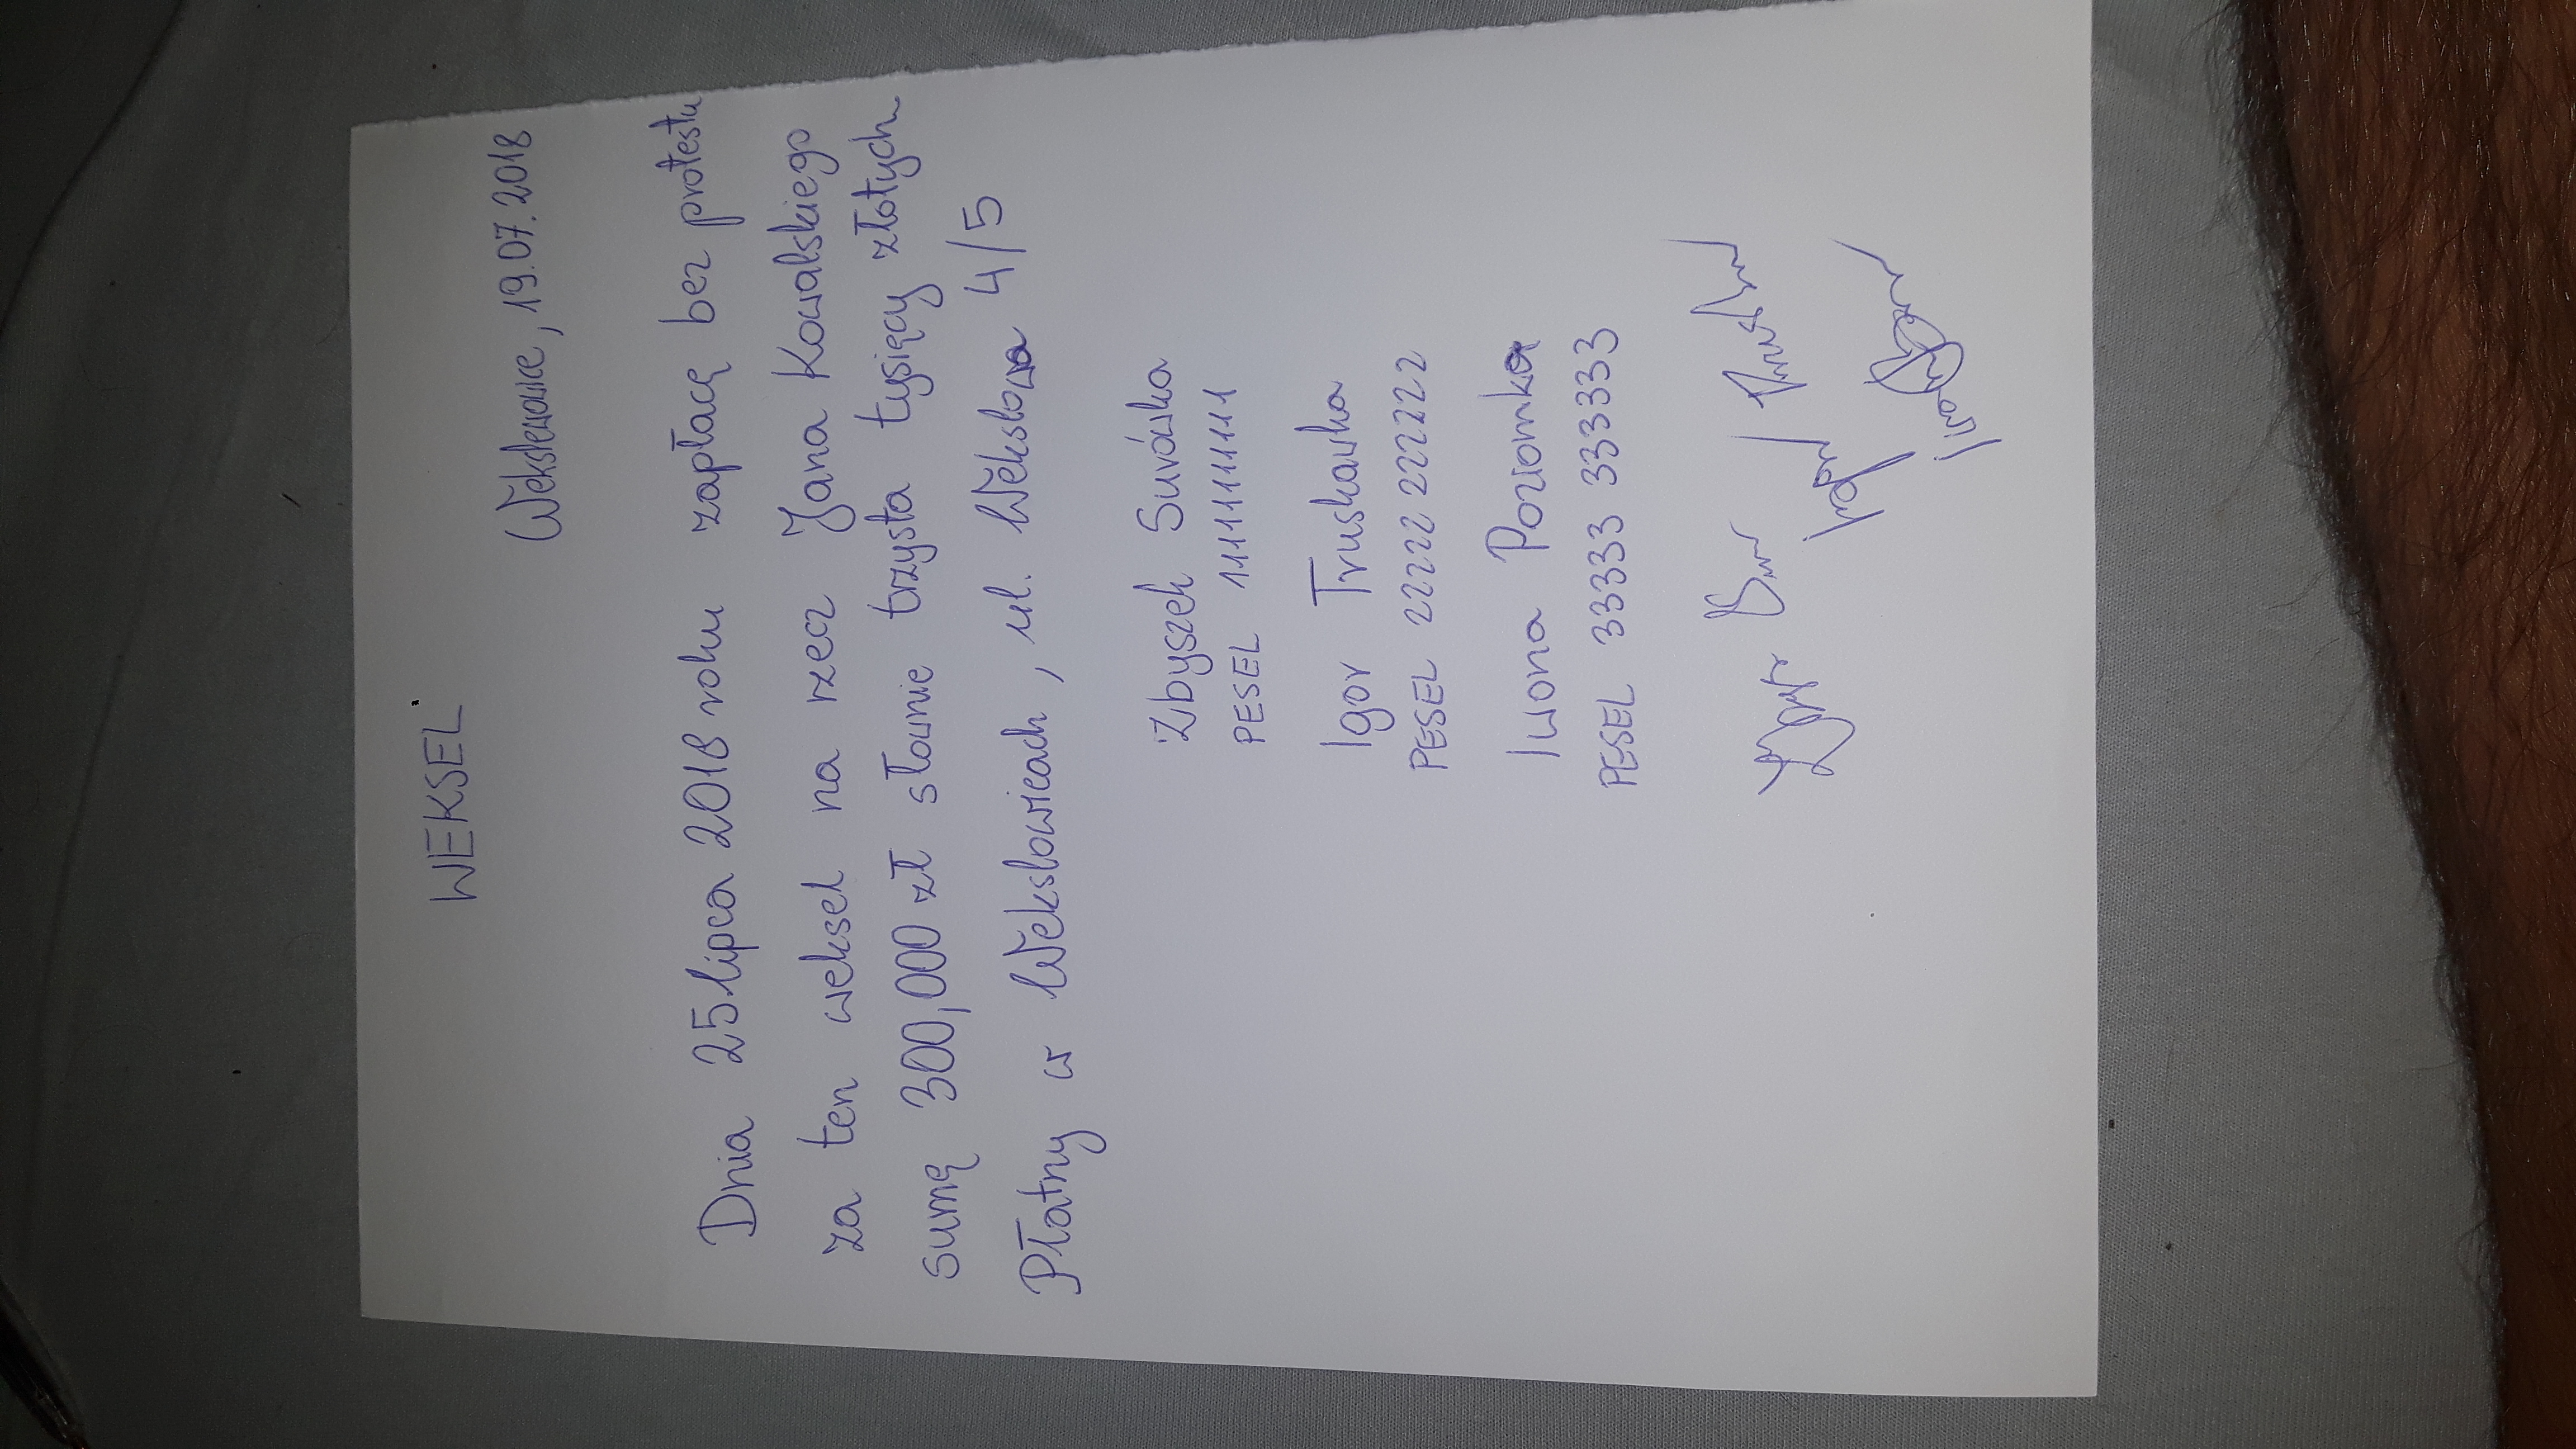 WEKSEL
Wekslewowice, 19.07.2018
Dnia 25 lipca 2018 roku zapłacę bez protestu
za ten weksel na rzecz Jana Kowalskiego
sumę 300,000 zł słownie trzysta tysięcy złotych
Płatny w Wekslowicach, ul. Wekslowa 4/5
Zbyszek Surówka
PESEL 11111111111
Igor Truskawka
PESEL 22222 222222
Iwona Poziomka
PESEL 33333 333333
Igor